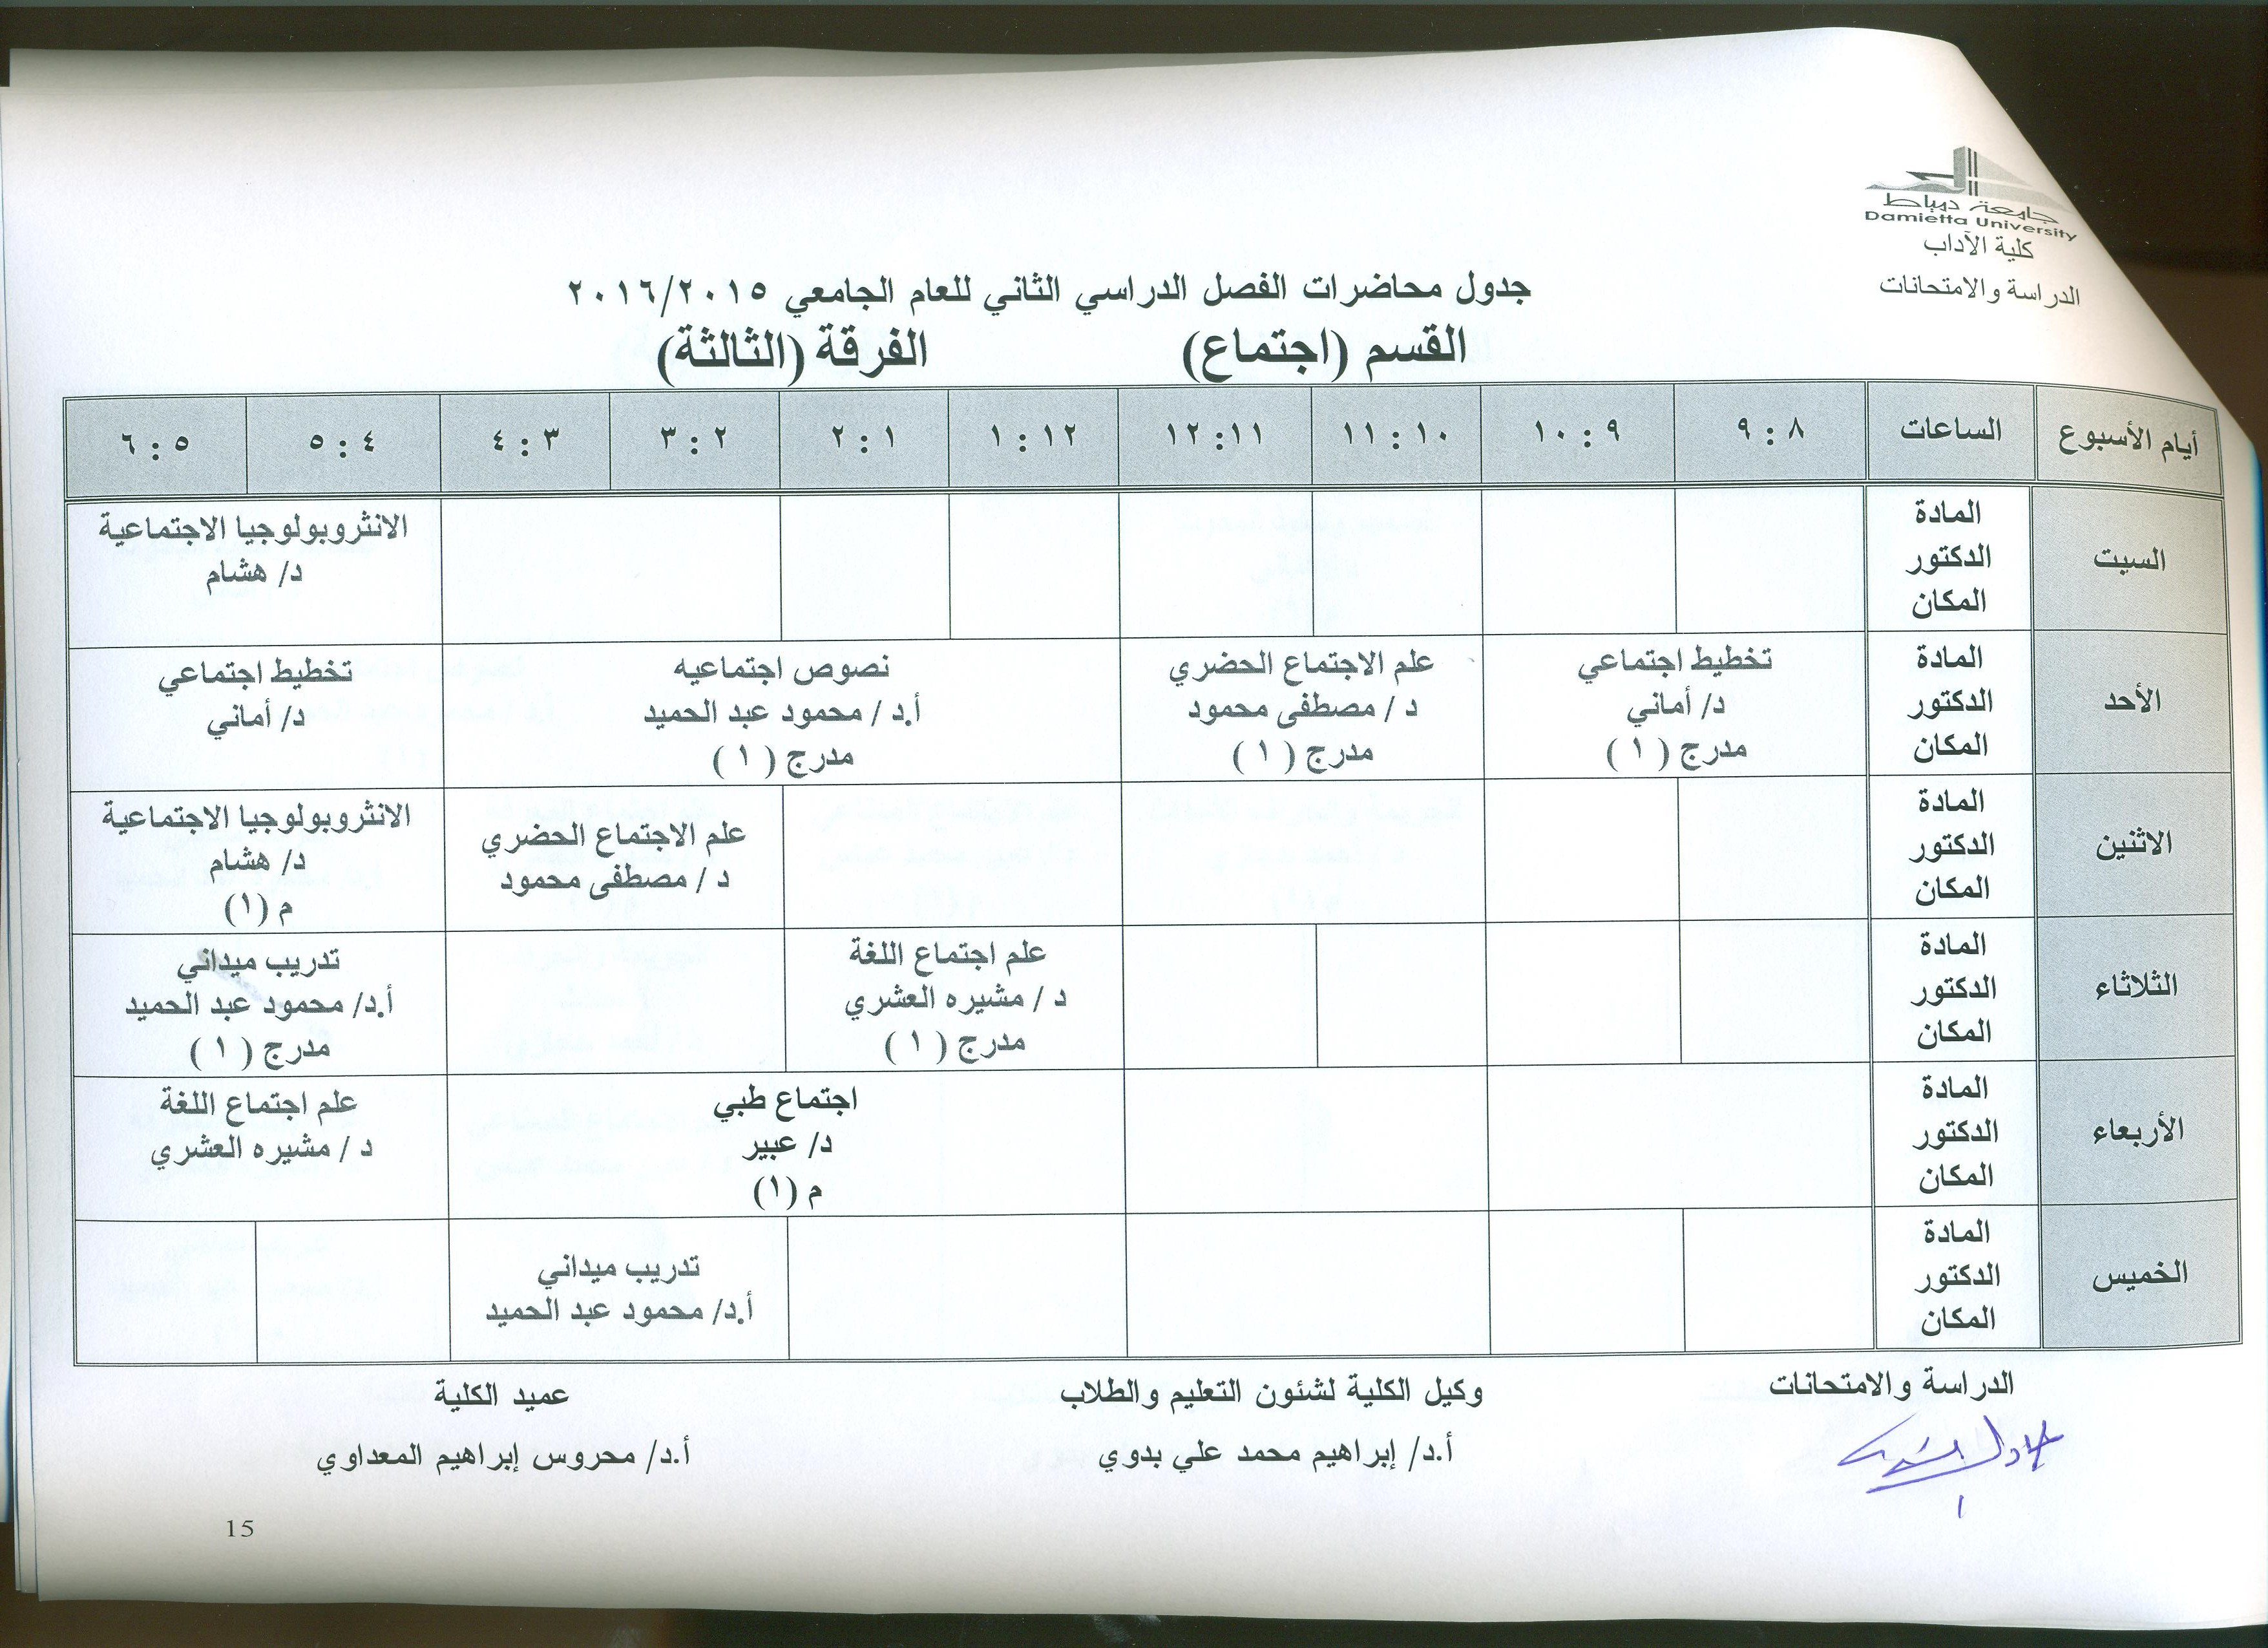 جامعة دمياط
Damietta University
كلية الآداب
الدراسة والامتحانات
جدول محاضرات الفصل الدراسي الثاني للعام الجامعي ٢٠١٦/٢٠١٥
القسم (اجتماع) الفرقة (الثالثة)
أيام الأسبوع الساعات ٨ : ٩ ٩ : ١٠ ١٠ : ١١ ١١ : ١٢ ١٢ : ١ ١ : ٢ ٢ : ٣ ٣ : ٤ ٤ : ٥ ٥ : ٦
السبت
المادة
الدكتور
المكان
الانثروبولوجيا الاجتماعية
د/ هشام
الأحد
المادة
الدكتور
المكان
تخطيط اجتماعي
د/ أماني
مدرج ( ١ )
علم الاجتماع الحضري
د / مصطفى محمود
مدرج ( ١ )
نصوص اجتماعيه
أ.د / محمود عبد الحميد
مدرج ( ١ )
تخطيط اجتماعي
د/ أماني
الاثنين
المادة
الدكتور
المكان
علم الاجتماع الحضري
د / مصطفى محمود
الانثروبولوجيا الاجتماعية
د/ هشام
م (١)
الثلاثاء
المادة
الدكتور
المكان
علم اجتماع اللغة
د / مشيره العشري
مدرج ( ١ )
تدريب ميداني
أ.د/ محمود عبد الحميد
مدرج ( ١ )
الأربعاء
المادة
الدكتور
المكان
اجتماع طبي
د/ عبير
م (١)
علم اجتماع اللغة
د / مشيره العشري
الخميس
المادة
الدكتور
المكان
تدريب ميداني
أ.د/ محمود عبد الحميد
الدراسة والامتحانات
وكيل الكلية لشئون التعليم والطلاب
أ.د/ إبراهيم محمد علي بدوي
عميد الكلية
أ.د/ محروس إبراهيم المعداوي
15